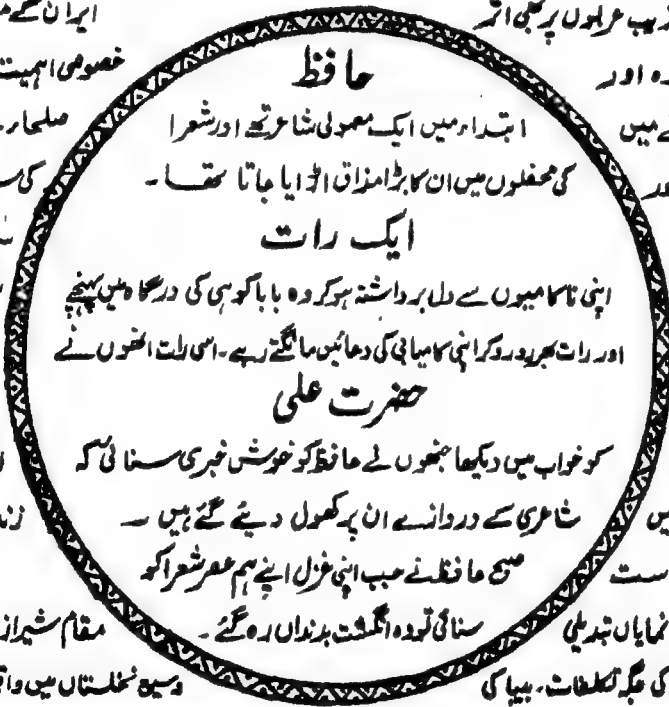 حافظ
ابتداء میں ایک معمولی شاعر تھے اور شعرا
کی محفلوں میں ان کا بڑا مذاق اڑایا جاتا تھا۔
ایک رات
اپنی ناکامیوں سے دل برداشتہ ہوکر وہ بابا کوہی کی درگاہ میں پہنچے
اور رات بھر رو رو کر اپنی کامیابی کی دعائیں مانگتے رہے۔ اسی رات انھوں نے
حضرت علی
کو خواب میں دیکھا جنھوں نے حافظ کو خوش خبری سنائی کہ
شاعری کے دروازے ان پر کھول دیئے گئے ہیں ۔
صبح حافظ نے جب اپنی غزل اپنے ہم عصر شعرا کو
سنائی تو وہ انگشت بدنداں رہ گئے ۔
غزلوں پر بھی اثر
ہ اور
میں
ست
نمایاں تبدیلی
کی جگہ تکلفات۔
ایران کے
خصوصی اہمیت
کی
مقام شیراز
وسیع نخلستان میں